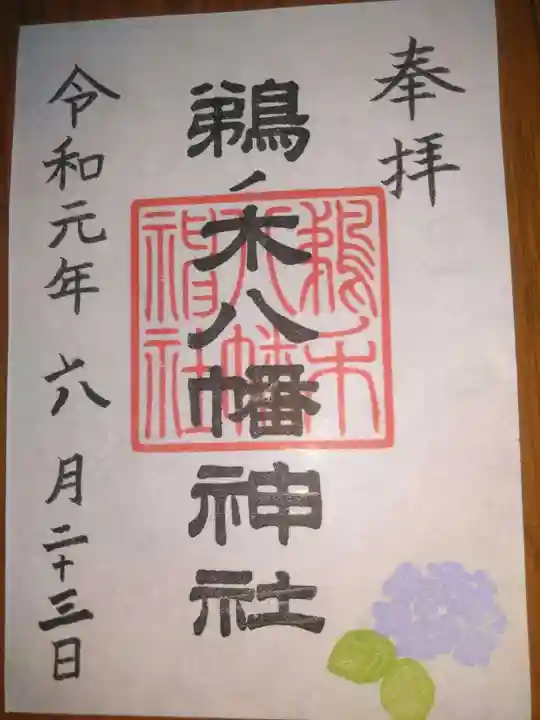 奉拝
鵜ノ木八幡神社
鵜木八幡神社
令和元年六月二十三日